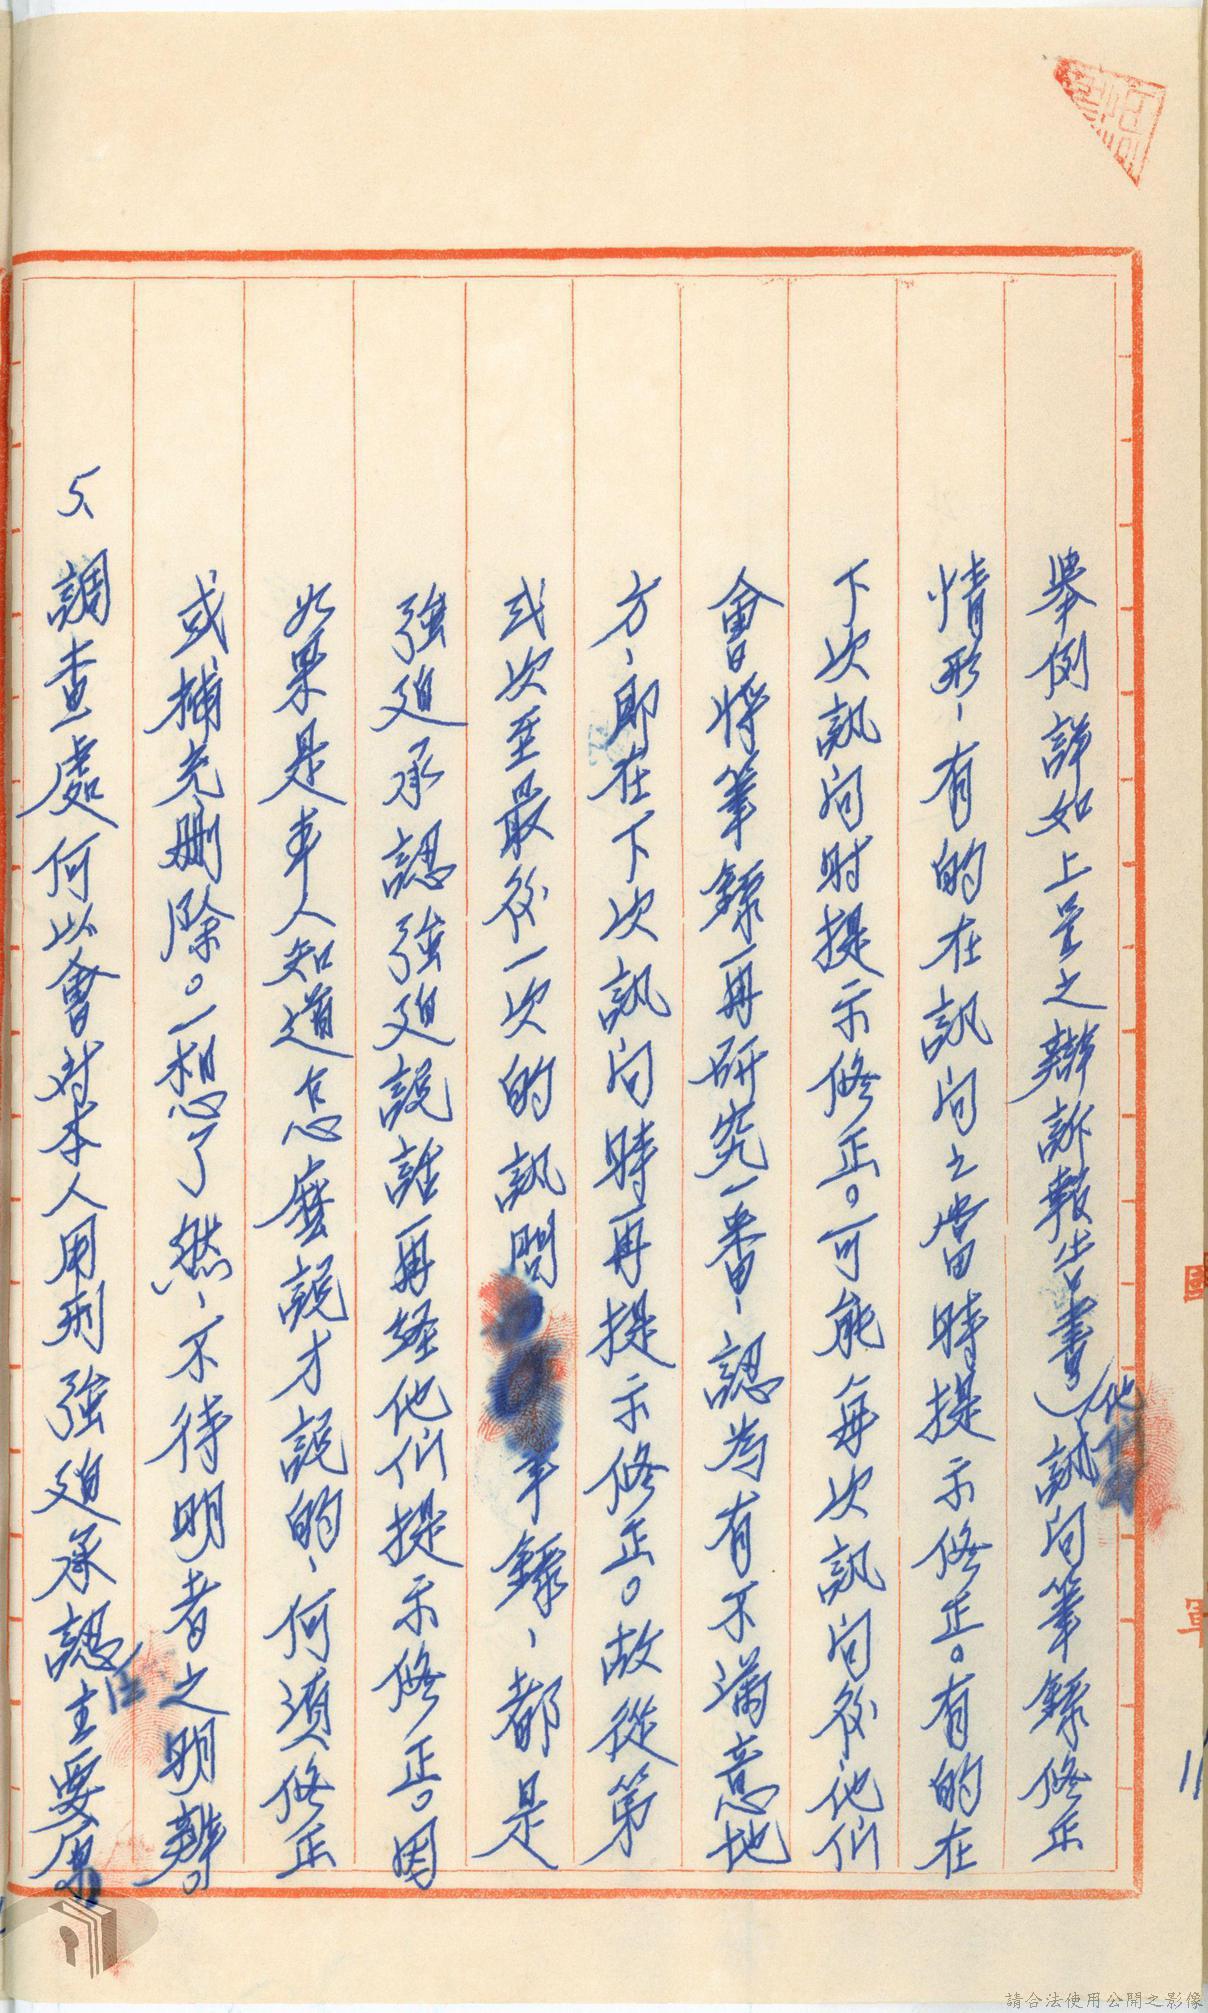 舉例詳如上呈之辯訴報告書)他們訊问筆錄修正
情形，有的在訊问之當時提示修正。有的在
下次訊问时提示修正。可能每次訊问後他们
會将筆錄再研究一番，認為有不滿意地
方，即在下次訊问時再提示修正。故從第
弍次至最後一次的訊問筆錄，都是
強迫承認強迫說話再経他们提示修正。因
如果是本人知道怎麼說才說的，何須修正
或補充删除。一想了然，不待明者之明辨。
5、調查處何以會对本人用刑強迫承認主要原
國
軍
11
請合法使用公開之影像